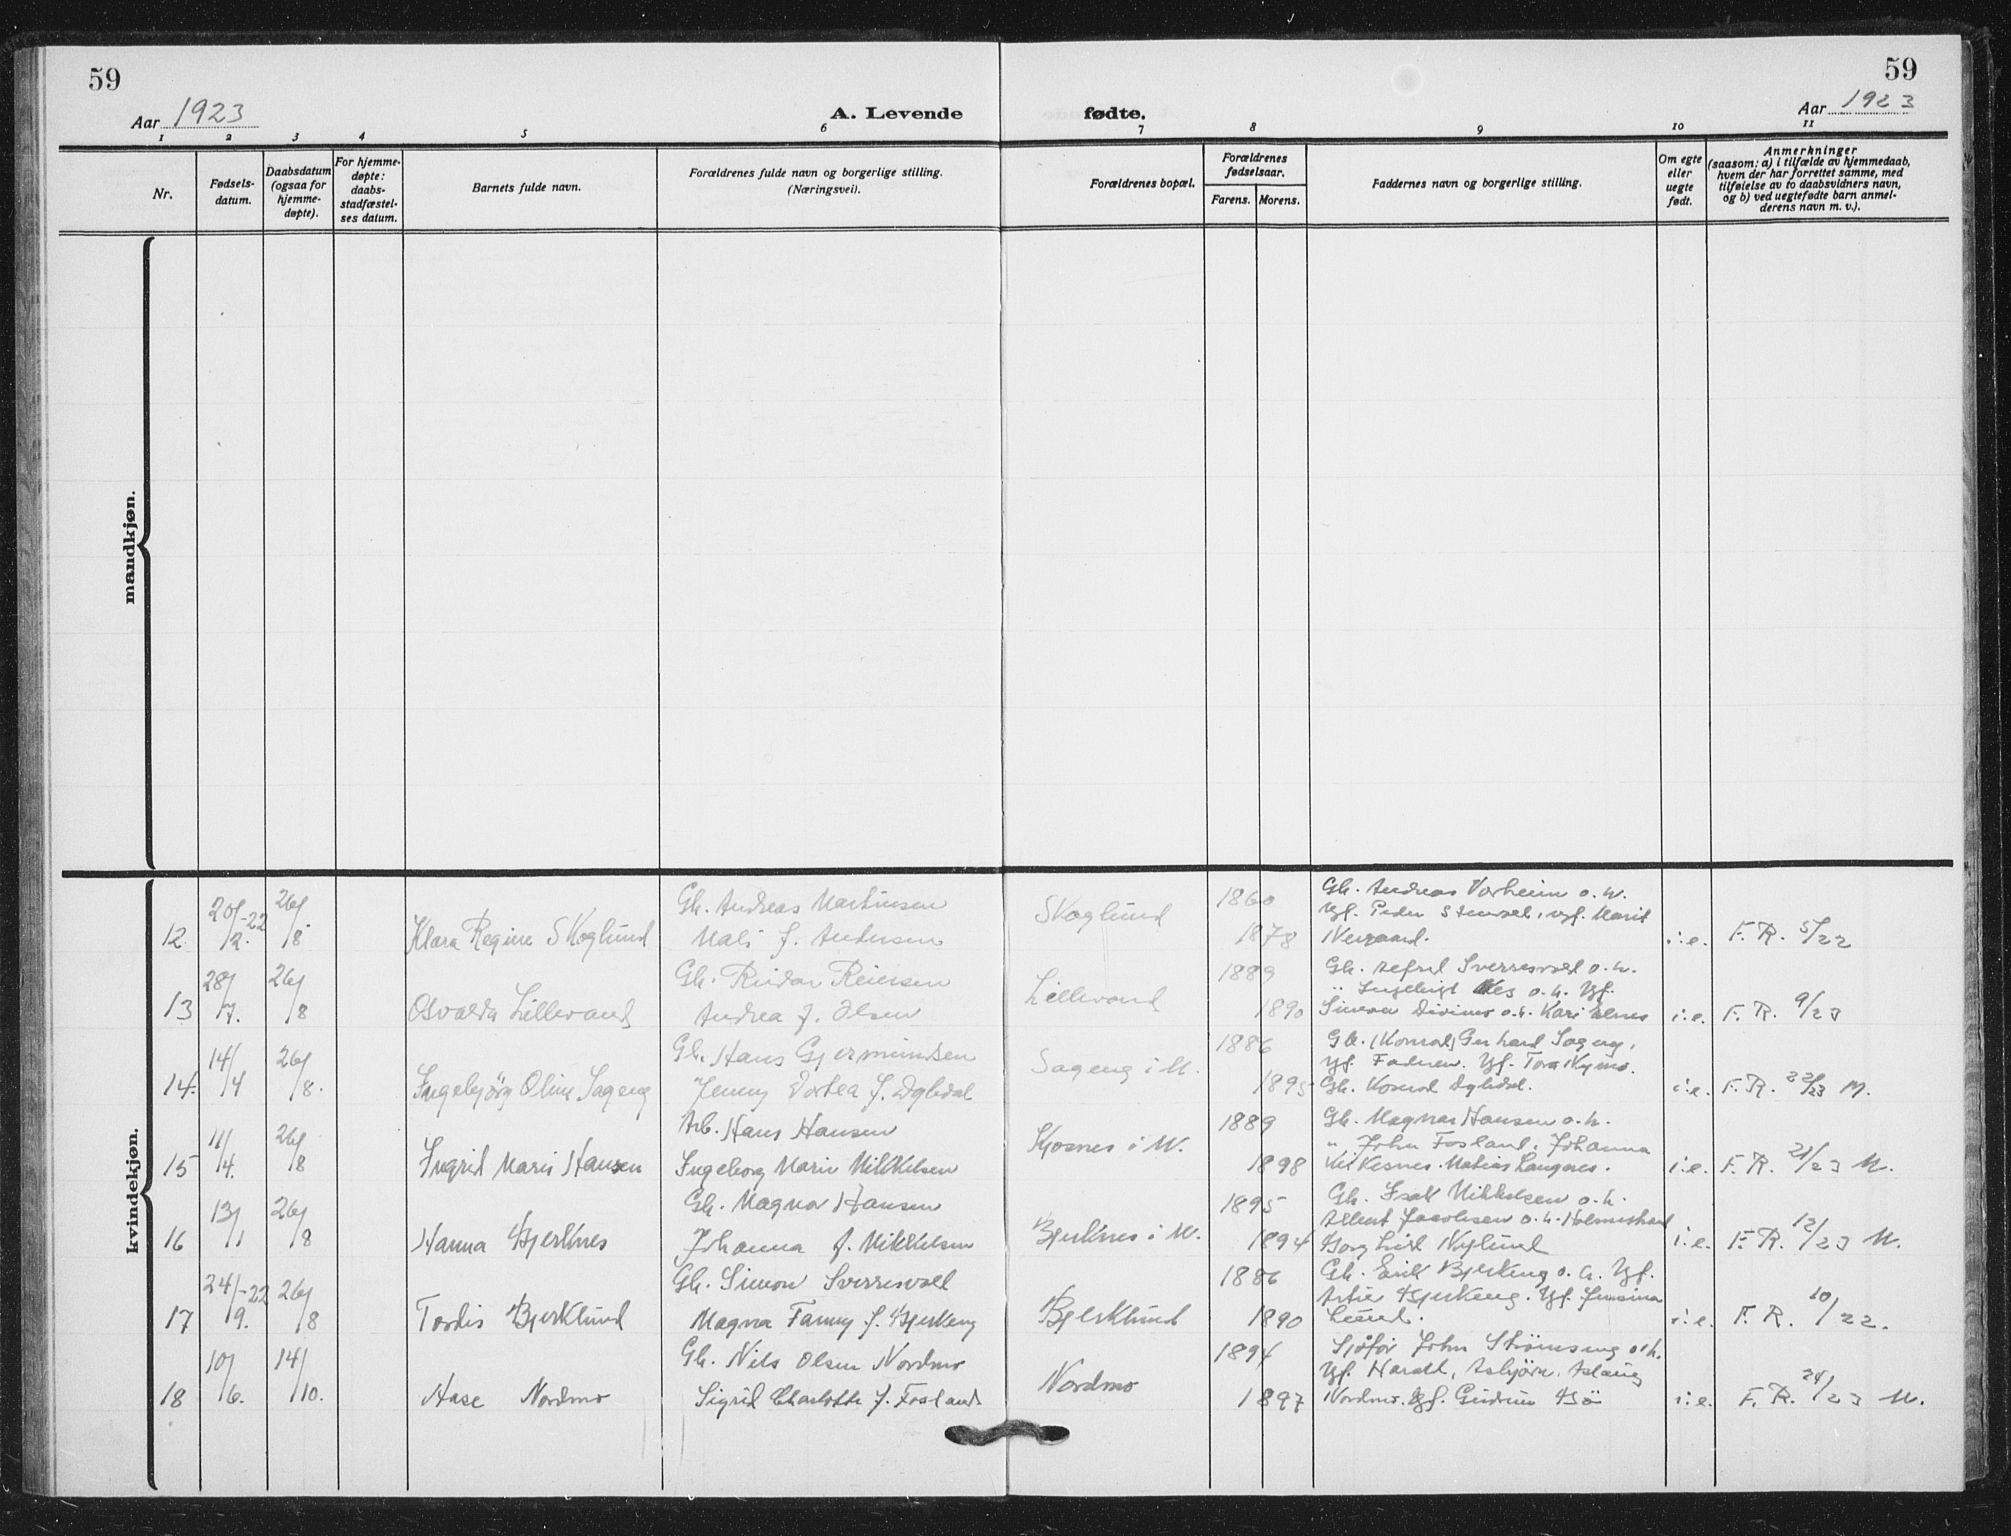 59
59
Aar 1923
A. Levende
fødte.
Aar 1923
1 2 3 4 5 6 7 8 9 10 11
Nr.
Fødsels-
datum.
Daabsdatum
(ogsaa for
hjemme-
døpte).
For hjemme-
døpte:
daabs-
stadfæstel-
ses datum.
Barnets fulde navn.
Forældrenes fulde navn og borgerlige stilling.
(Næringsvei).
Forældrenes bopæl.
Forældrenes
fødselsaar.
Farens. Morens.
Faddernes navn og borgerlige stilling.
Om egte
eller
uegte
født.
Anmerkninger
(saasom: a) i tilfælde av hjemmedaab,
hvem der har forrettet samme, med
tilføielse av to daabsvidners navn,
og b) ved uegtefødte barn anmel-
derens navn m. v.).
mandkjøn.
kvindekjøn.
12 20/2-22 26/8 Klara Regine Skoglund
Gb. Andreas Martinsen
Mali f. Andersen
Skoglund
1860
1878
Gb. Andreas Varheim o. h.
Ugf. Peder, ugf. Marit
i.e. F. R. 5/22
13 28/7. 26/8 Osvalda Lillevand
Gb. Reidar Reiersen
Andrea f. Olsen
Lillevand
1889
1890
Gb. Alfred Sverresvold o. h.
" Ingebrigt Nes o. h. Ugf.
o. h. Kari Elnes
i.e. F. R. 9/23
14. 14/4 26/8. Ingebjörg Oline Sageng
Gb. Hans Gjermundsen
Jenny Dortea f. Dybdal
Sageng i M.
1886
1895
Gb. (Konrad) Gerhard Sageng,
Ugf. Faderen. Ugf. Tora Nymo.
Gb. Konrad Dybdal.
i.e. F. R. 22/23 M.
15 11/4. 26/8 Ingrid Marie Hansen
Arb. Hans Hansen
Ingeborg Marie Mikkelsen
Kjosnes i M.
1889
1898
Gb. Magnar Hansen o. h.
" John Fosland, Johanna
Matias Langnes.
i.e. F. R. 21/23 M.
16 13/1 26/8 Hanna Bjerknes
Gb. Magnar Hansen
Johanna f. Mikkelsen
Bjerknes i M.
1895
1894
Gb. Isak Mikkelsen o. h.
Albert Jacobsen o. h. Holmstrand
Borghild Nylund
i.e. F. R. 12/23 M.
17 24/9.-22 26/8 Tordis Bjerklund
Gb. Simon Sverresvold
Magna Fanny f. Bjerkeng
Bjerklund
1886
1890
Gb. Erik Bjerkeng o. h. Ugf.
Bjerkeng. Ugf. Jensina
i.e. F. R. 10/22.
18 10/6. 14/10. Aase Nordmo
Gb. Nils Olsen Nordmo
Sigrid Charlotte f. Fosland
Nordmo
1894
1897
Sjåfør John Strömseng o. h.
Ugf. Harald, Asbjörn, Aslaug
Nordmo. Ugf. Gudrun Bö
i.e. F. R. 24/23 M.